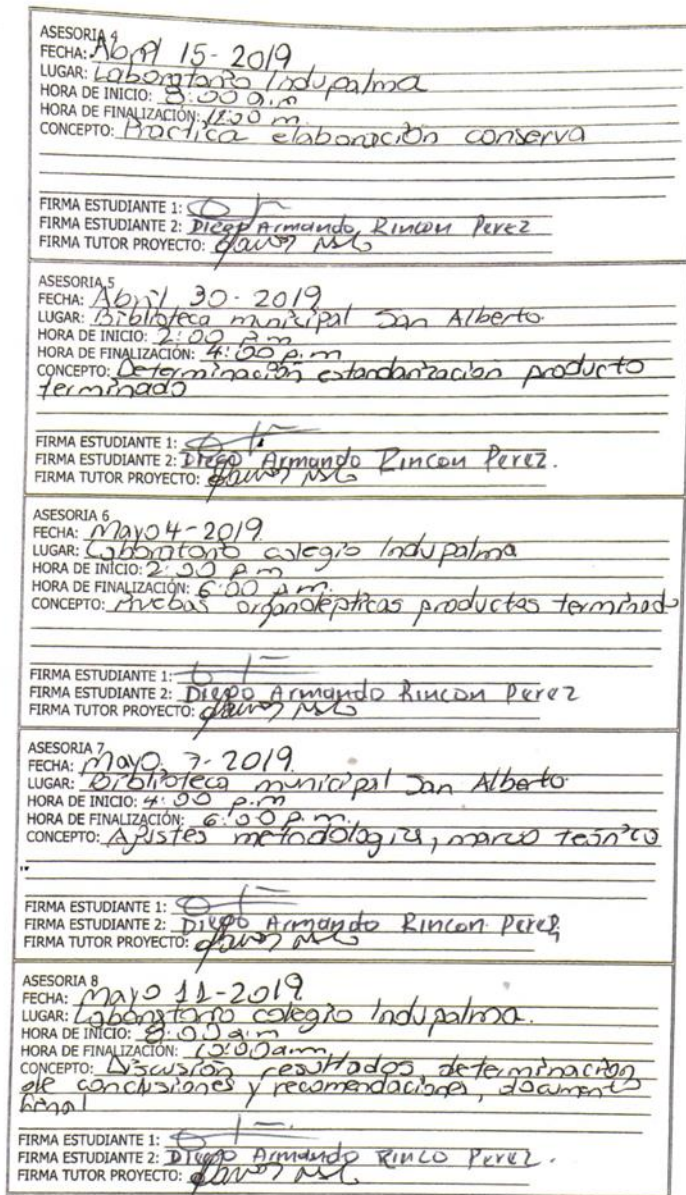 ASESORIA 4
FECHA: Abril 15-2019
LUGAR: Laboratorio Indupalma
HORA DE INICIO: 8:00 a.m
HORA DE FINALIZACIÓN: 12:00 m.
CONCEPTO: Practica elaboración conserva
FIRMA ESTUDIANTE 1:
FIRMA ESTUDIANTE 2: Diego Armando Rincon Perez
FIRMA TUTOR PROYECTO:
ASESORIA 5
FECHA: Abril 30-2019
LUGAR: Biblioteca municipal San Alberto.
HORA DE INICIO: 2:00 p.m
HORA DE FINALIZACIÓN: 4:00 p.m
CONCEPTO: Determinación estandarizacion producto
terminado
FIRMA ESTUDIANTE 1:
FIRMA ESTUDIANTE 2: Diego Armando Rincon Perez.
FIRMA TUTOR PROYECTO:
ASESORIA 6
FECHA: Mayo 4-2019.
LUGAR: Laboratorio colegio Indupalma
HORA DE INICIO: 2:00 p.m
HORA DE FINALIZACIÓN: 6:00 p.m.
CONCEPTO: Pruebas organolépticas productos terminado
FIRMA ESTUDIANTE 1:
FIRMA ESTUDIANTE 2: Diego Armando Rincon Perez
FIRMA TUTOR PROYECTO:
ASESORIA 7
FECHA: Mayo. 7-2019.
LUGAR: Biblioteca municipal San Alberto.
HORA DE INICIO: 4:00 p.m
HORA DE FINALIZACIÓN: 6:00 p.m.
CONCEPTO: Ajustes metodologia, marco teórico
FIRMA ESTUDIANTE 1:
FIRMA ESTUDIANTE 2: Diego Armando Rincon Perez
FIRMA TUTOR PROYECTO:
ASESORIA 8
FECHA: Mayo 11-2019
LUGAR: Laboratorio colegio Indupalma.
HORA DE INICIO: 8:00 a.m
HORA DE FINALIZACIÓN: 10:00 a.m
CONCEPTO: Discusión resultados, determinación
de conclusiones y recomendaciones, documento
final
FIRMA ESTUDIANTE 1:
FIRMA ESTUDIANTE 2: Diego Armando Rinco Perez.
FIRMA TUTOR PROYECTO: